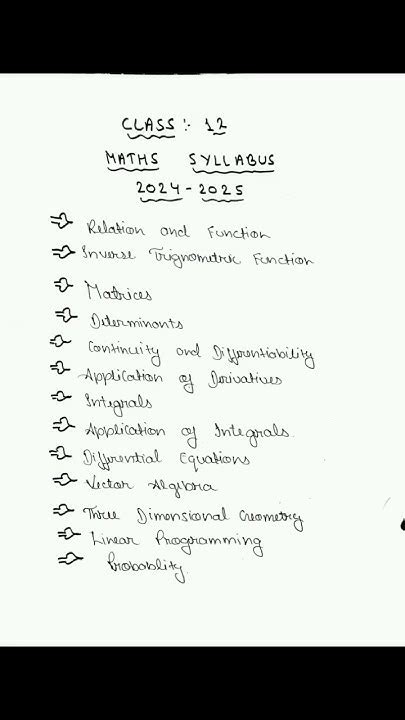 CLASS :- 12
MATHS SYLLABUS
2024-2025
Relation and Function
Inverse Trignometric Function
Matrices
Determinants
Continuity and Differentiability
Application of Derivatives
Integrals
Application of Integrals
Differential Equations
Vector Algebra
Three Dimensional Geometry
Linear Programming
Probablity.